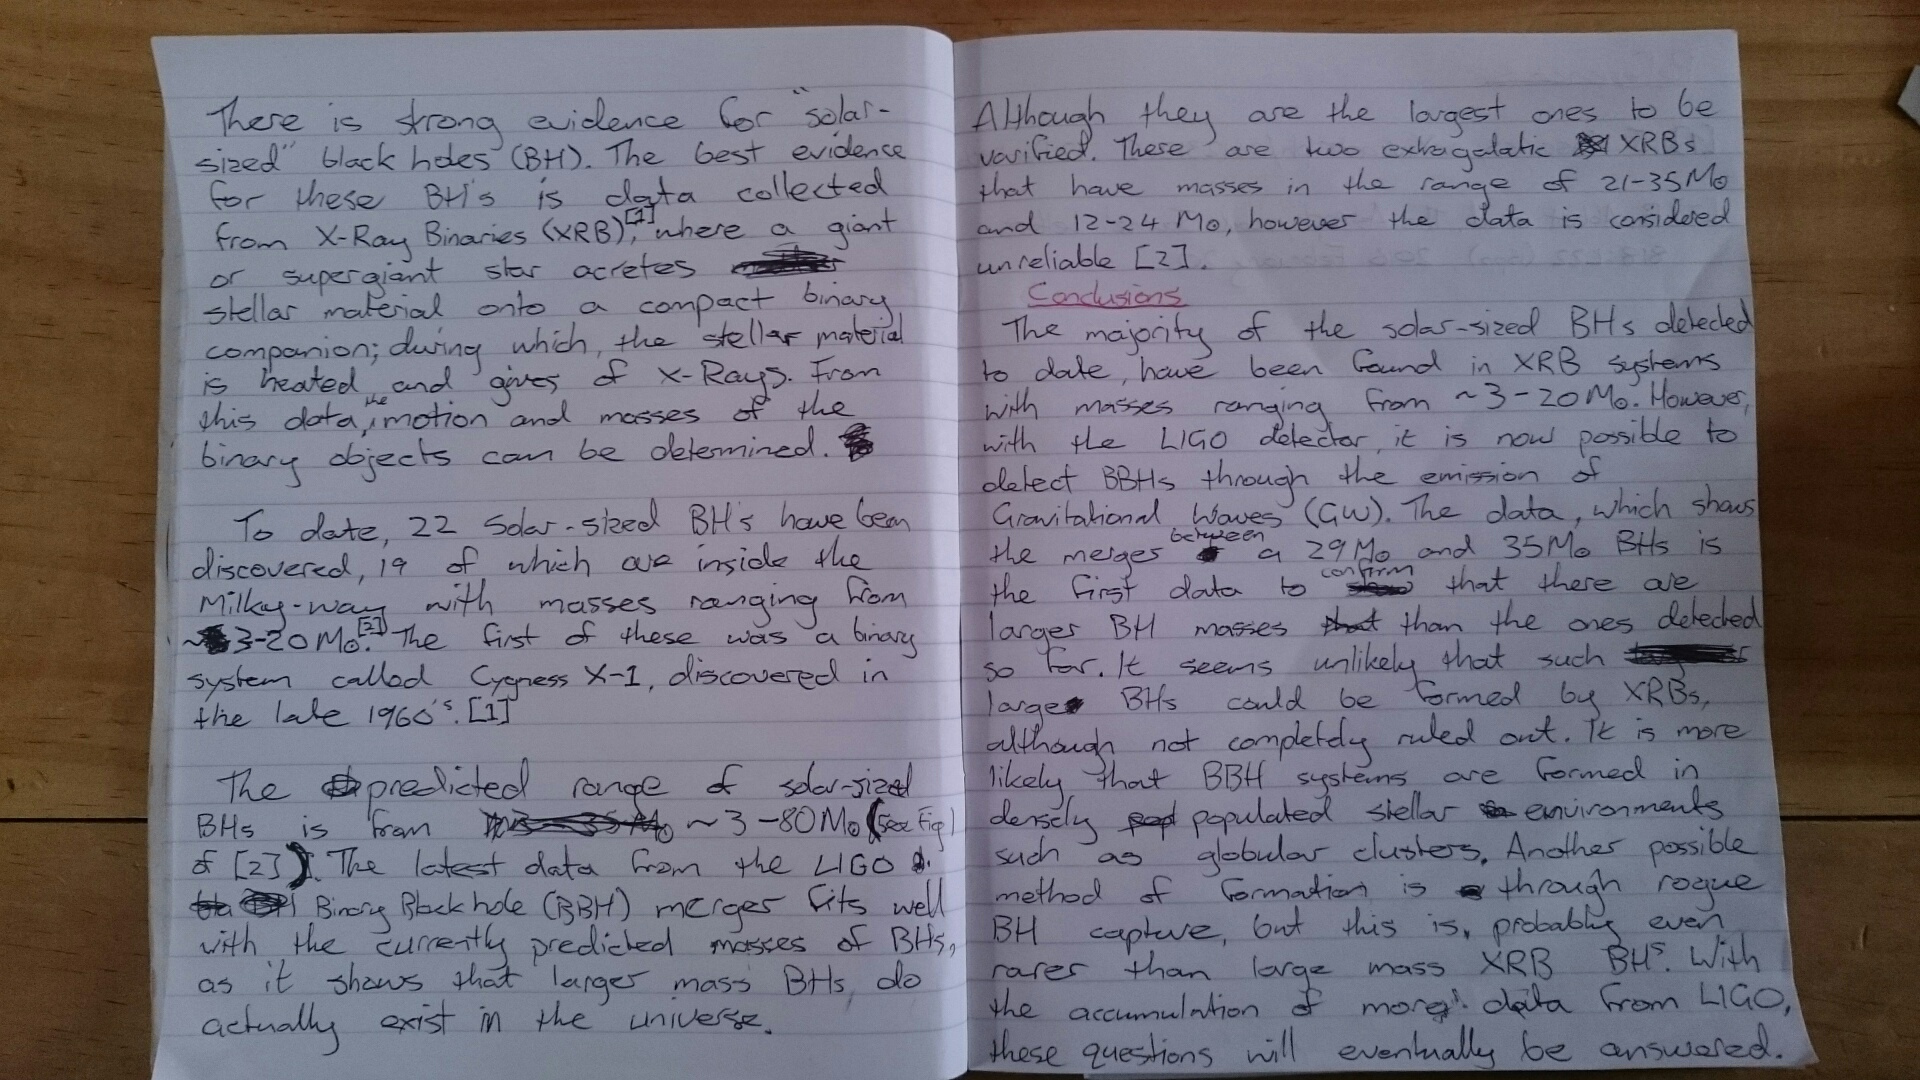 There is strong evidence for "solar-
sized" black holes (BH). The best evidence
for these BH's is data collected
from X-Ray Binaries (XRB)[1], where a giant
or supergiant star acretes
stellar material onto a compact binary
companion; during which, the stellar material
is heated and gives of X-Rays. From
this data, the motion and masses of the
binary objects can be determined.
To date, 22 Solar-sized BH's have been
discovered, 19 of which are inside the
Milky-way with masses ranging from
~3-20M⊙.[2] The first of these was a binary
system called Cygness X-1, discovered in
the late 1960's. [1]
The predicted range of solar-sized
BHs is from ~3-80M⊙ (See Fig 1
of [2]). The latest data from the LIGO
Binary Black hole (BBH) merger fits well
with the currently predicted masses of BHs,
as it shows that larger mass BHs, do
actually exist in the universe.
Although they are the largest ones to be
varified. These are two extragalatic XRBs
that have masses in the range of 21-35M⊙
and 12-24 M⊙, however the data is considered
unreliable [2].
Conclusions
The majority of the solar-sized BHs detected
to date, have been found in XRB systems
with masses ranging from ~3-20M⊙. However,
with the LIGO detector, it is now possible to
detect BBHs through the emission of
Gravitational Waves (GW). The data, which shows
the merger between a 29M⊙ and 35M⊙ BHs is
the first data to confirm that there are
larger BH masses than the ones detected
so far. It seems unlikely that such
large BHs could be formed by XRBs,
although not completely ruled out. It is more
likely that BBH systems are formed in
densely populated stellar environments
such as globular clusters. Another possible
method of formation is through rogue
BH capture, but this is, probably even
rarer than large mass XRB BH's. With
the accumulation of more data from LIGO,
these questions will eventually be answered.